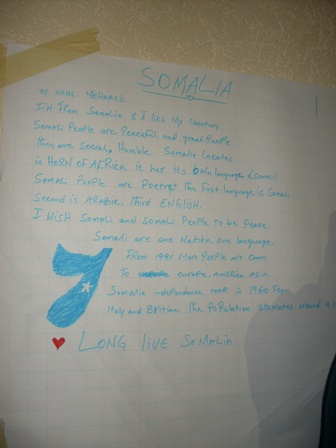 SOMALIA
MY NAME MOHAMED
I'M From Somalia & I like My Country
Somali People are Peaceful and great People
they are Social, Humble Somalia locates
in HORN OF AFRICA it has its OWN language (Somali
Somali People are Poetrys the First language is Somali
Second is ARABIC, third ENGLISH.
I WISH Somali and somali People to be Peace
Somali are one Nation, one language.
From 1991 Many People are came
To europe, America Asia
Somalia independence took in 1960 From
Italy and Britian the PoPulation estimates around
LONG live SOMALIA